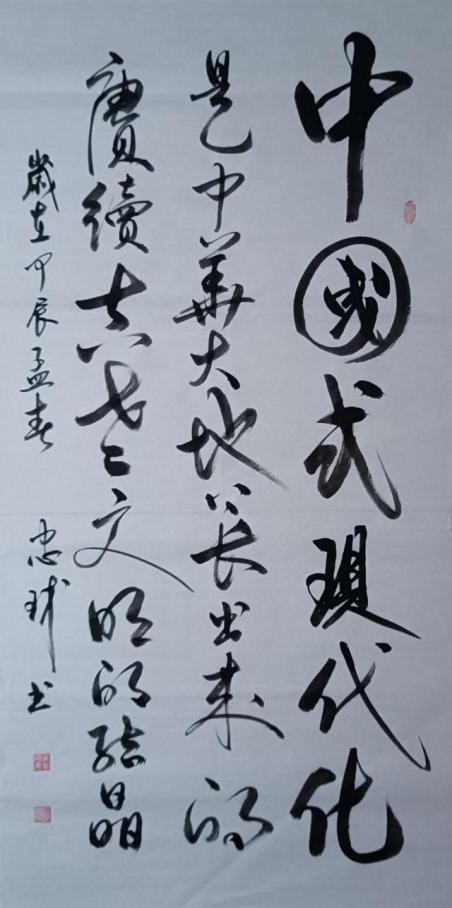 中國式現代化
是中華大地長出來的
賡續古老文明的結晶
歲在甲辰孟春 忠球书